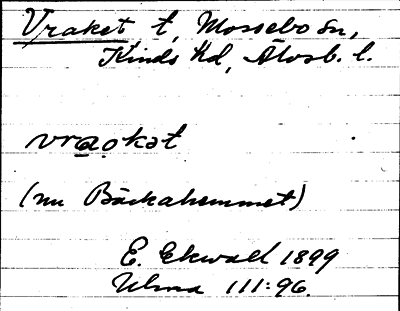 Vraket t, Mossebo sn,
Kinds hd, Älvsb. l.
vraokət
(nu Bäckahemmet)
E. Ekwall 1899
Ulma 111:96.